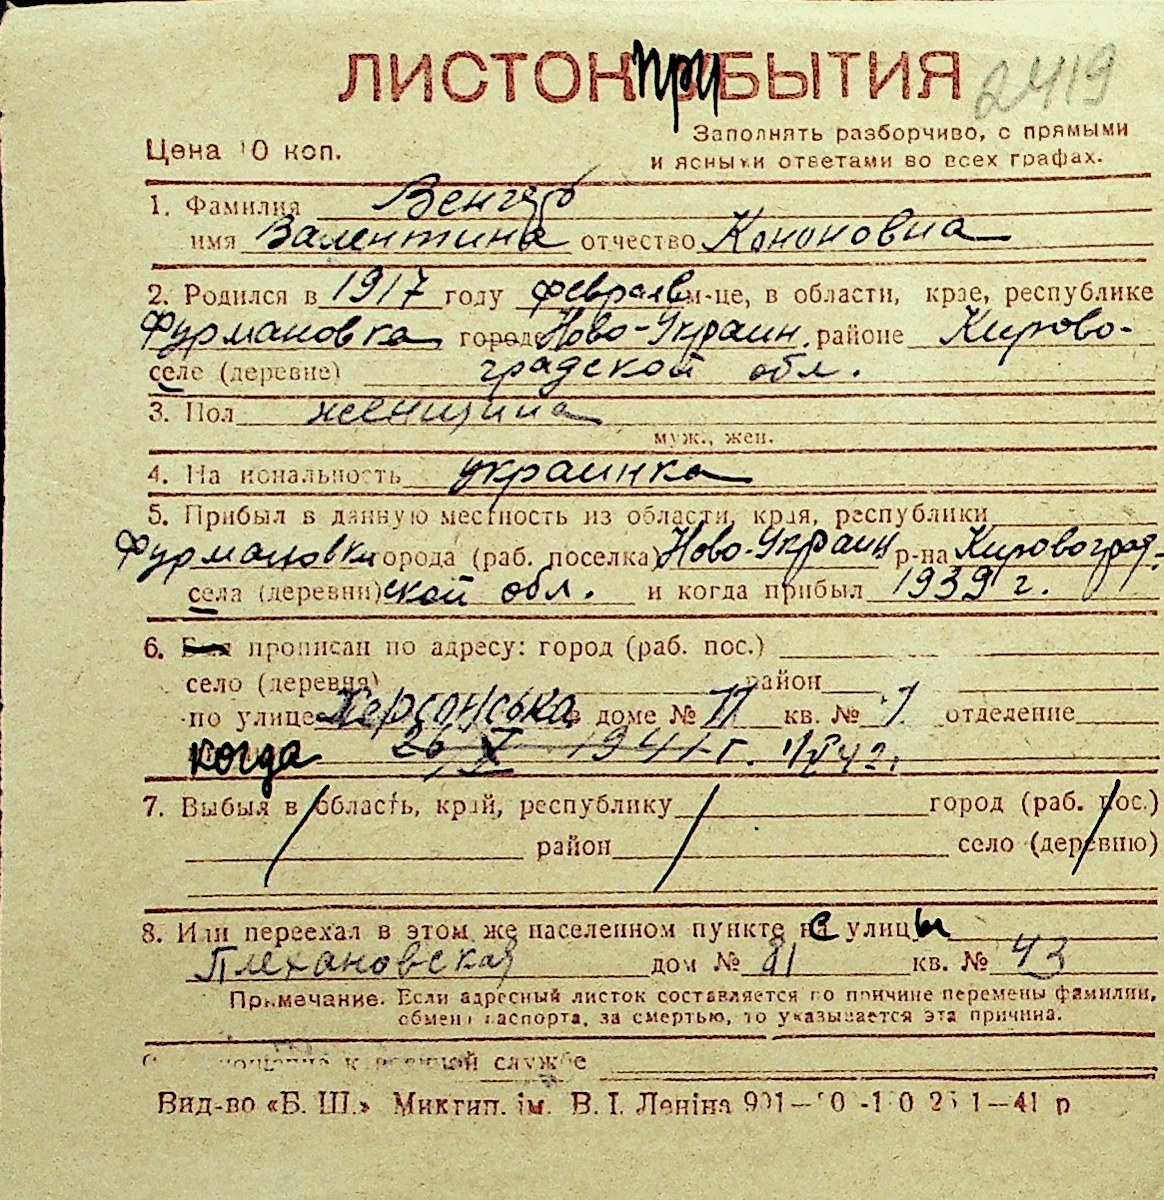 ЛИСТОК ПРИБЫТИЯ 2419
Цена 10 коп.
Заполнять разборчиво, с прямыми
и ясными ответами во всех графах.
1. Фамилия Венгер
имя Валентина отчество Кононовна
2. Родился в 1917 году феврале м-це, в области, крае, республике
Фурмановка города Ново-Украин. районе Кирово-
селе (деревне) градской обл.
3. Пол женщина
муж., жен.
4. Национальность украинка
5. Прибыл в данную местность из области, края, республики
Фурмановки города (раб. поселка) Ново-Украин р-на Кировоград-
села (деревни) ской обл. и когда прибыл 1939 г.
6. Был прописан по адресу: город (раб. пос.)
село (деревня) район
по улице Херсонська в доме № кв. № отделение
когда 26 X 1941 г.
7. Выбыл в область, край, республику город (раб. пос.)
район село (деревню)
8. Или переехал в этом же населенном пункте с улицы
Плехановская дом № 81 кв. № 43
Примечание. Если адресный листок составляется по причине перемены фамилии,
обмена паспорта, за смертью, то указывается эта причина.
к военной службе
Вид-во «Б. Ш.» Миктип. ім. В. І. Леніна